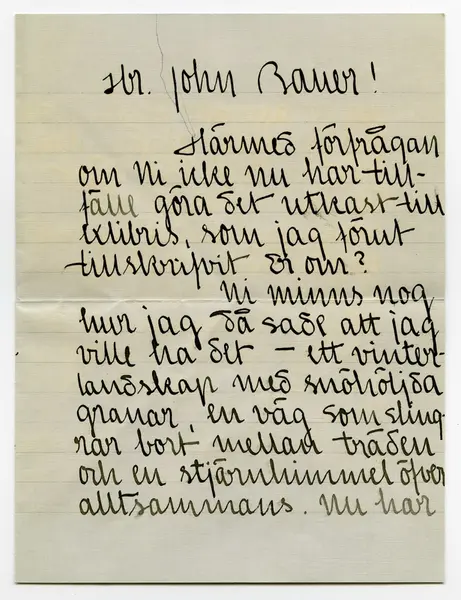 Hr. John Bauer!
Härmed förfrågan
om Ni icke nu har till-
fälle göra det utkast till
exlibris, som jag förut
tillskrifvit Er om?
Ni minns nog
hur jag då sade att jag
ville ha det – ett vinter-
landskap med snöhöljda
granar, en väg som sling-
rar bort mellan träden
och en stjärnhimmel öfver
alltsammans. Nu har